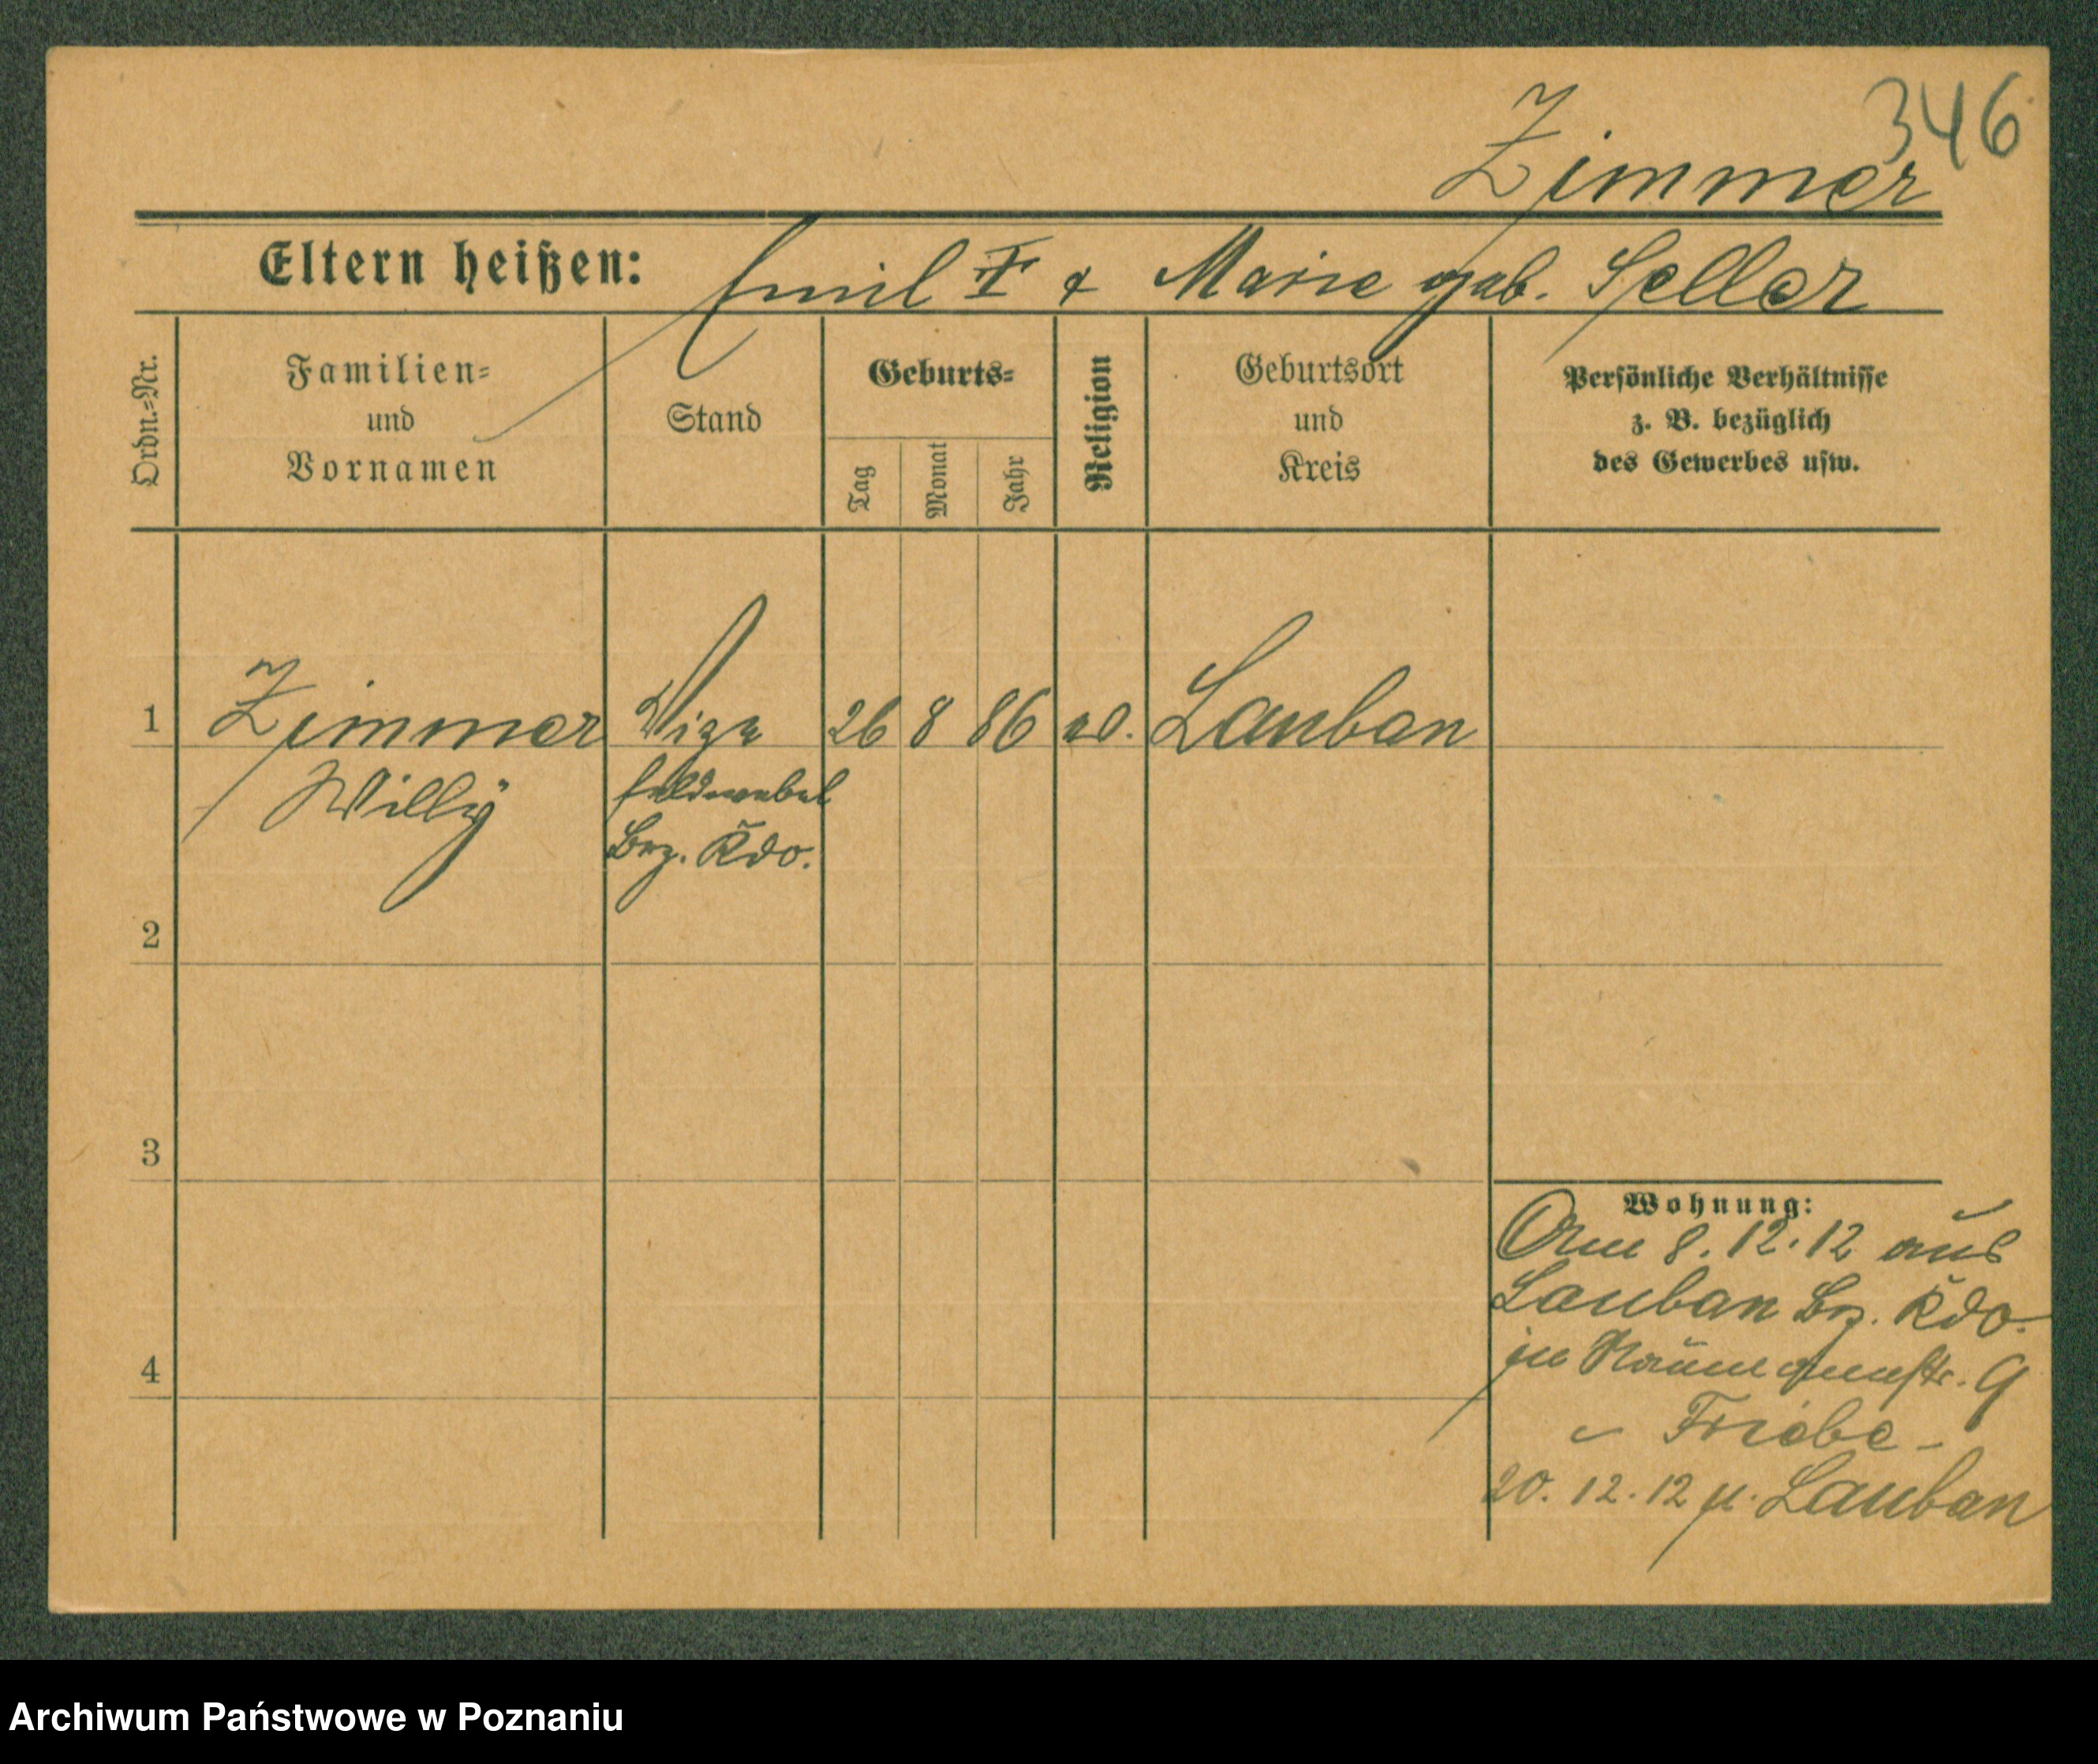 346
Zimmer
Eltern heißen: Emil & Marie geb. Seller
Ordn.=Nr.
Familien=
und
Vornamen
Stand
Geburts=
Tag
Monat
Jahr
Religion
Geburtsort
und
Kreis
Persönliche Verhältnisse
z. B. bezüglich
des Gewerbes usw.
1 Zimmer Vize 26 8 86 ev. Lauban
Willy feldwebel
Bez. Kdo.
2
3
4
Wohnung:
Am 8.12.12 aus
Lauban Bez. Kdo.
in 9
- Friebe -
20.12.12 n. Lauban
Archiwum Państwowe w Poznaniu